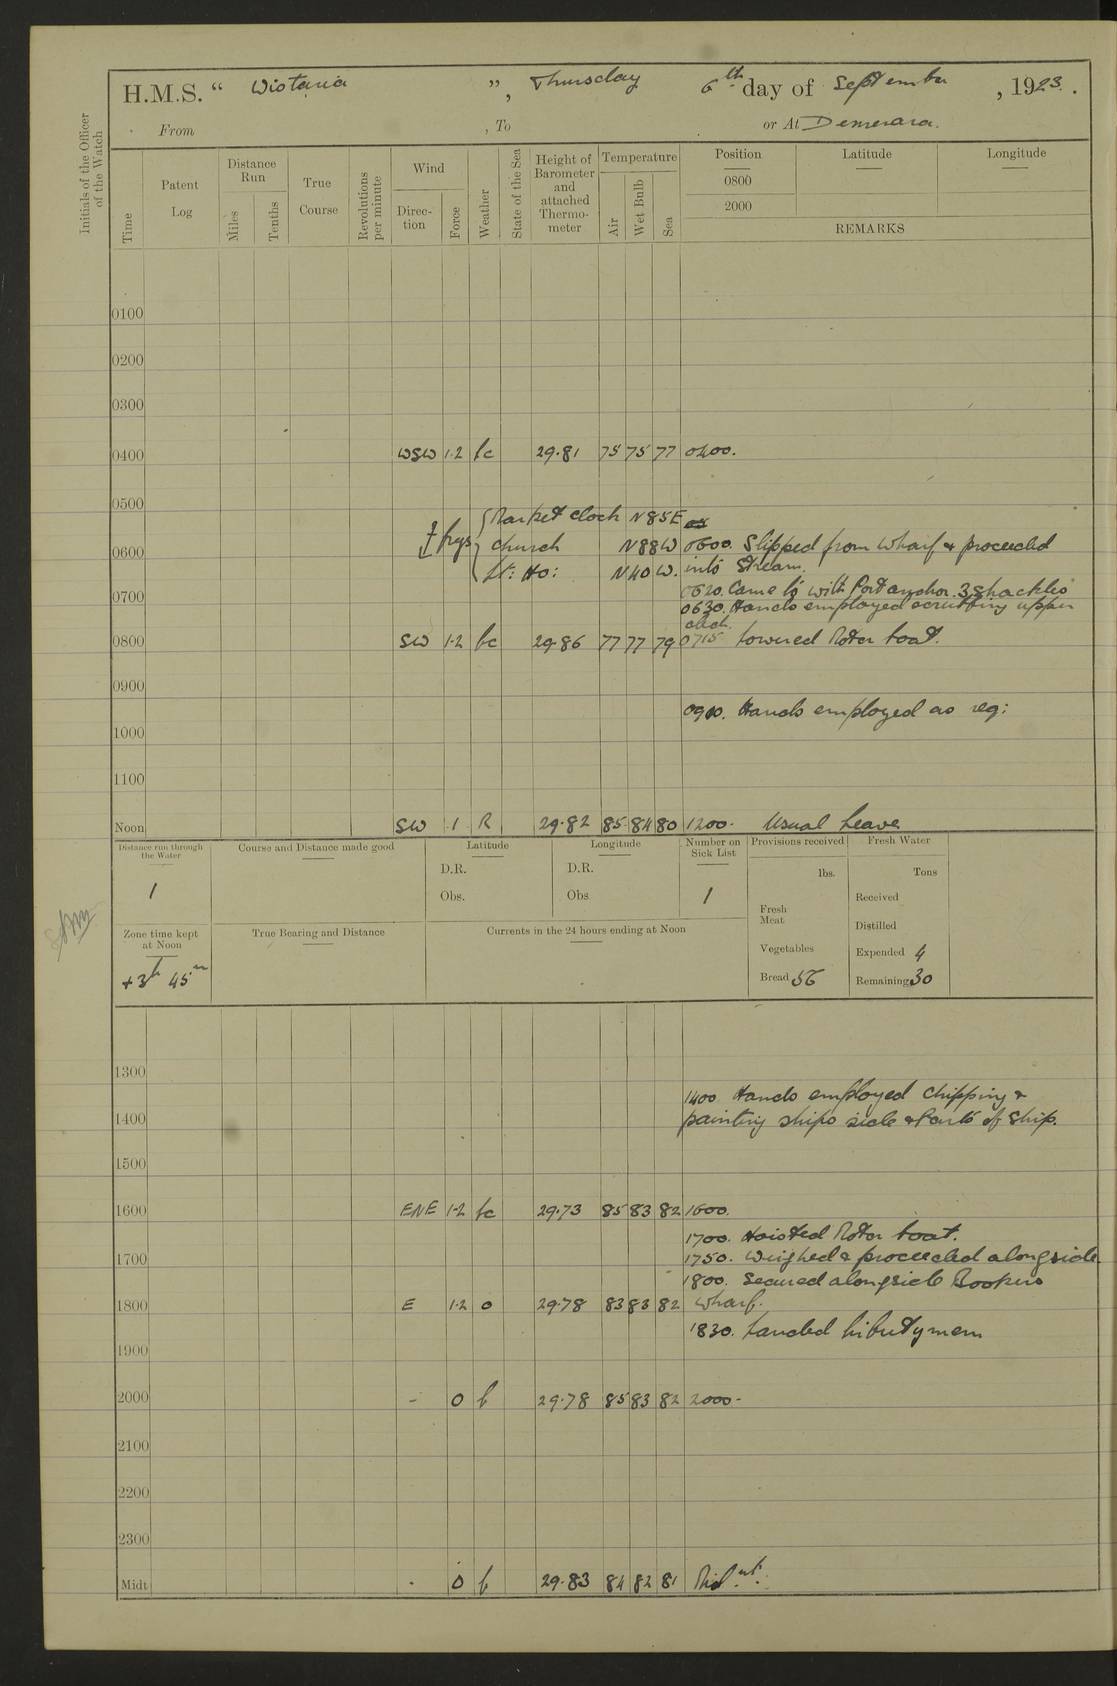 H.M.S. " Wistaria ", Thursday 6th day of September, 1923.
From , To or At Demerara.
Initials of the Officer of the Watch
Time
Patent Log
Distance Run
Miles
Tenths
True Course
Revolutions per minute
Wind
Direction
Force
Weather
State of the Sea
Height of Barometer and attached Thermometer
Temperature
Air
Wet Bulb
Sea
Position Latitude Longitude
0800
2000
REMARKS
0100
0200
0300
0400 WSW 1·2 bc 29·81 75 75 77 0400.
0500
Market clock N85E
0600 brgs church N88W 0600. Slipped from wharf & proceeded
Lt: Ho: N40W. into Stream.
0620. Came to with Port anchor. 3 shackles
0700 0630. Hands employed scrubbing upper
deck.
0800 SW 1·2 bc 29·86 77 77 79 0715 Lowered Motor boat.
0900
0910. Hands employed as req:
1000
1100
Noon SW 1 R 29·82 85 84 80 1200. Usual Leave
Distance run through the Water
1
Course and Distance made good
Latitude
D.R.
Obs.
Longitude
D.R.
Obs
Number on Sick List
1
Provisions received
lbs.
Fresh Meat
Vegetables
Bread 56
Fresh Water
Tons
Received
Distilled
Expended 4
Remaining 30
Zone time kept at Noon
+3h 45m
True Bearing and Distance
Currents in the 24 hours ending at Noon
1300
1400. Hands employed chipping &
1400 painting ships side & Parts of Ship.
1500
1600 ENE 1·2 bc 29·73 85 83 82 1600.
1700. Hoisted Motor boat.
1700 1750. Weighed & proceeded alongside
1800. Secured alongside Bookers
1800 E 1·2 o 29·78 83 83 82 Wharf.
1830. Landed liberty men
1900
2000 - 0 b 29·78 85 83 82 2000.
2100
2200
2300
Midt . 0 b 29·83 84 82 81 Mid.nt.